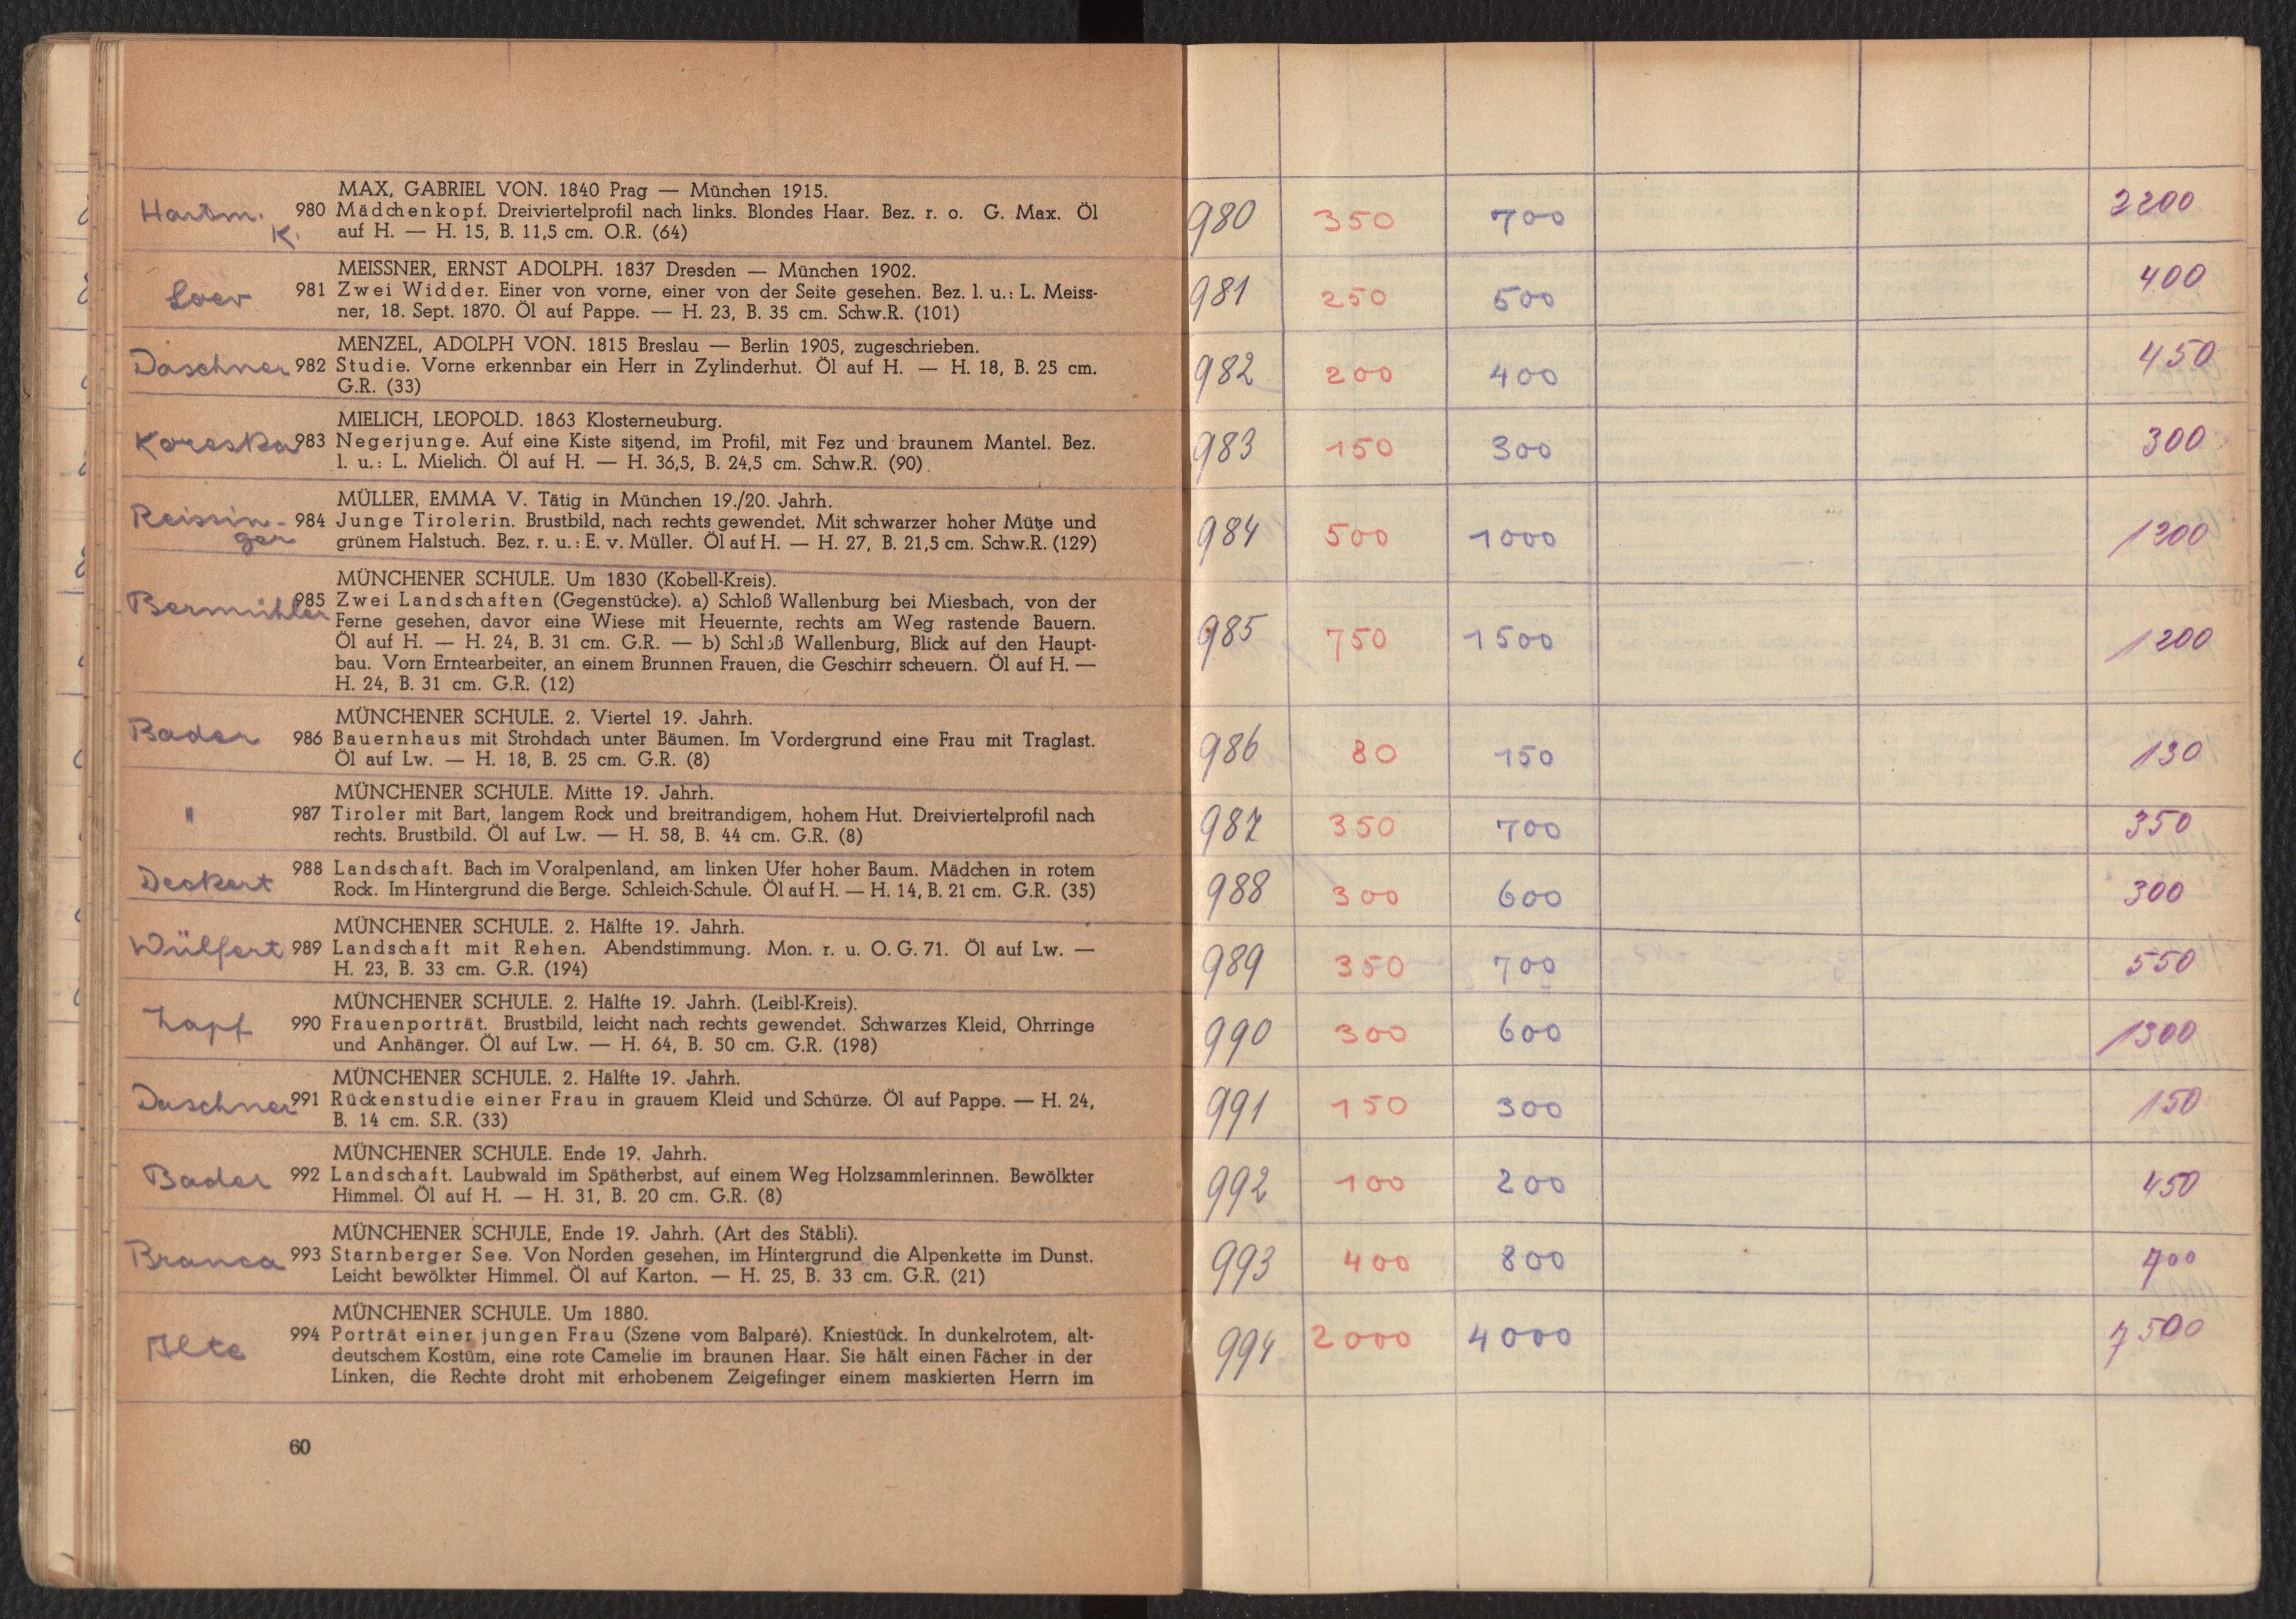 MAX, GABRIEL VON. 1840 Prag — München 1915.
Hartm. K. 980 Mädchenkopf. Dreiviertelprofil nach links. Blondes Haar. Bez. r. o. G. Max. Öl
auf H. — H. 15, B. 11,5 cm. O.R. (64)
MEISSNER, ERNST ADOLPH. 1837 Dresden — München 1902.
Loev 981 Zwei Widder. Einer von vorne, einer von der Seite gesehen. Bez. l. u.: L. Meiss-
ner, 18. Sept. 1870. Öl auf Pappe. — H. 23, B. 35 cm. Schw.R. (101)
MENZEL, ADOLPH VON. 1815 Breslau — Berlin 1905, zugeschrieben.
Daschner 982 Studie. Vorne erkennbar ein Herr in Zylinderhut. Öl auf H. — H. 18, B. 25 cm.
G.R. (33)
MIELICH, LEOPOLD. 1863 Klosterneuburg.
Koreska 983 Negerjunge. Auf eine Kiste sitzend, im Profil, mit Fez und braunem Mantel. Bez.
l. u.: L. Mielich. Öl auf H. — H. 36,5, B. 24,5 cm. Schw.R. (90)
MÜLLER, EMMA V. Tätig in München 19./20. Jahrh.
Reissin- 984 Junge Tirolerin. Brustbild, nach rechts gewendet. Mit schwarzer hoher Mütze und
ger grünem Halstuch. Bez. r. u.: E. v. Müller. Öl auf H. — H. 27, B. 21,5 cm. Schw.R. (129)
MÜNCHENER SCHULE. Um 1830 (Kobell-Kreis).
Bermühler 985 Zwei Landschaften (Gegenstücke). a) Schloß Wallenburg bei Miesbach, von der
Ferne gesehen, davor eine Wiese mit Heuernte, rechts am Weg rastende Bauern.
Öl auf H. — H. 24, B. 31 cm. G.R. — b) Schloß Wallenburg, Blick auf den Haupt-
bau. Vorn Erntearbeiter, an einem Brunnen Frauen, die Geschirr scheuern. Öl auf H. —
H. 24, B. 31 cm. G.R. (12)
MÜNCHENER SCHULE. 2. Viertel 19. Jahrh.
Bader 986 Bauernhaus mit Strohdach unter Bäumen. Im Vordergrund eine Frau mit Traglast.
Öl auf Lw. — H. 18, B. 25 cm. G.R. (8)
MÜNCHENER SCHULE. Mitte 19. Jahrh.
" 987 Tiroler mit Bart, langem Rock und breitrandigem, hohem Hut. Dreiviertelprofil nach
rechts. Brustbild. Öl auf Lw. — H. 58, B. 44 cm. G.R. (8)
988 Landschaft. Bach im Voralpenland, am linken Ufer hoher Baum. Mädchen in rotem
Deckert Rock. Im Hintergrund die Berge. Schleich-Schule. Öl auf H. — H. 14, B. 21 cm. G.R. (35)
MÜNCHENER SCHULE. 2. Hälfte 19. Jahrh.
Wülfert 989 Landschaft mit Rehen. Abendstimmung. Mon. r. u. O. G. 71. Öl auf Lw. —
H. 23, B. 33 cm. G.R. (194)
MÜNCHENER SCHULE. 2. Hälfte 19. Jahrh. (Leibl-Kreis).
Zapf 990 Frauenporträt. Brustbild, leicht nach rechts gewendet. Schwarzes Kleid, Ohrringe
und Anhänger. Öl auf Lw. — H. 64, B. 50 cm. G.R. (198)
MÜNCHENER SCHULE. 2. Hälfte 19. Jahrh.
Daschner 991 Rückenstudie einer Frau in grauem Kleid und Schürze. Öl auf Pappe. — H. 24,
B. 14 cm. S.R. (33)
MÜNCHENER SCHULE. Ende 19. Jahrh.
Bader 992 Landschaft. Laubwald im Spätherbst, auf einem Weg Holzsammlerinnen. Bewölkter
Himmel. Öl auf H. — H. 31, B. 20 cm. G.R. (8)
MÜNCHENER SCHULE, Ende 19. Jahrh. (Art des Stäbli).
Branca 993 Starnberger See. Von Norden gesehen, im Hintergrund die Alpenkette im Dunst.
Leicht bewölkter Himmel. Öl auf Karton. — H. 25, B. 33 cm. G.R. (21)
MÜNCHENER SCHULE. Um 1880.
Alte 994 Porträt einer jungen Frau (Szene vom Balparé). Kniestück. In dunkelrotem, alt-
deutschem Kostüm, eine rote Camelie im braunen Haar. Sie hält einen Fächer in der
Linken, die Rechte droht mit erhobenem Zeigefinger einem maskierten Herrn im
60
980 350 700 2200
981 250 500 400
982 200 400 450
983 150 300 300
984 500 1000 1200
985 750 1500 1200
986 80 150 130
987 350 700 350
988 300 600 300
989 350 700 550
990 300 600 1300
991 150 300 150
992 100 200 450
993 400 800 700
994 2000 4000 7500